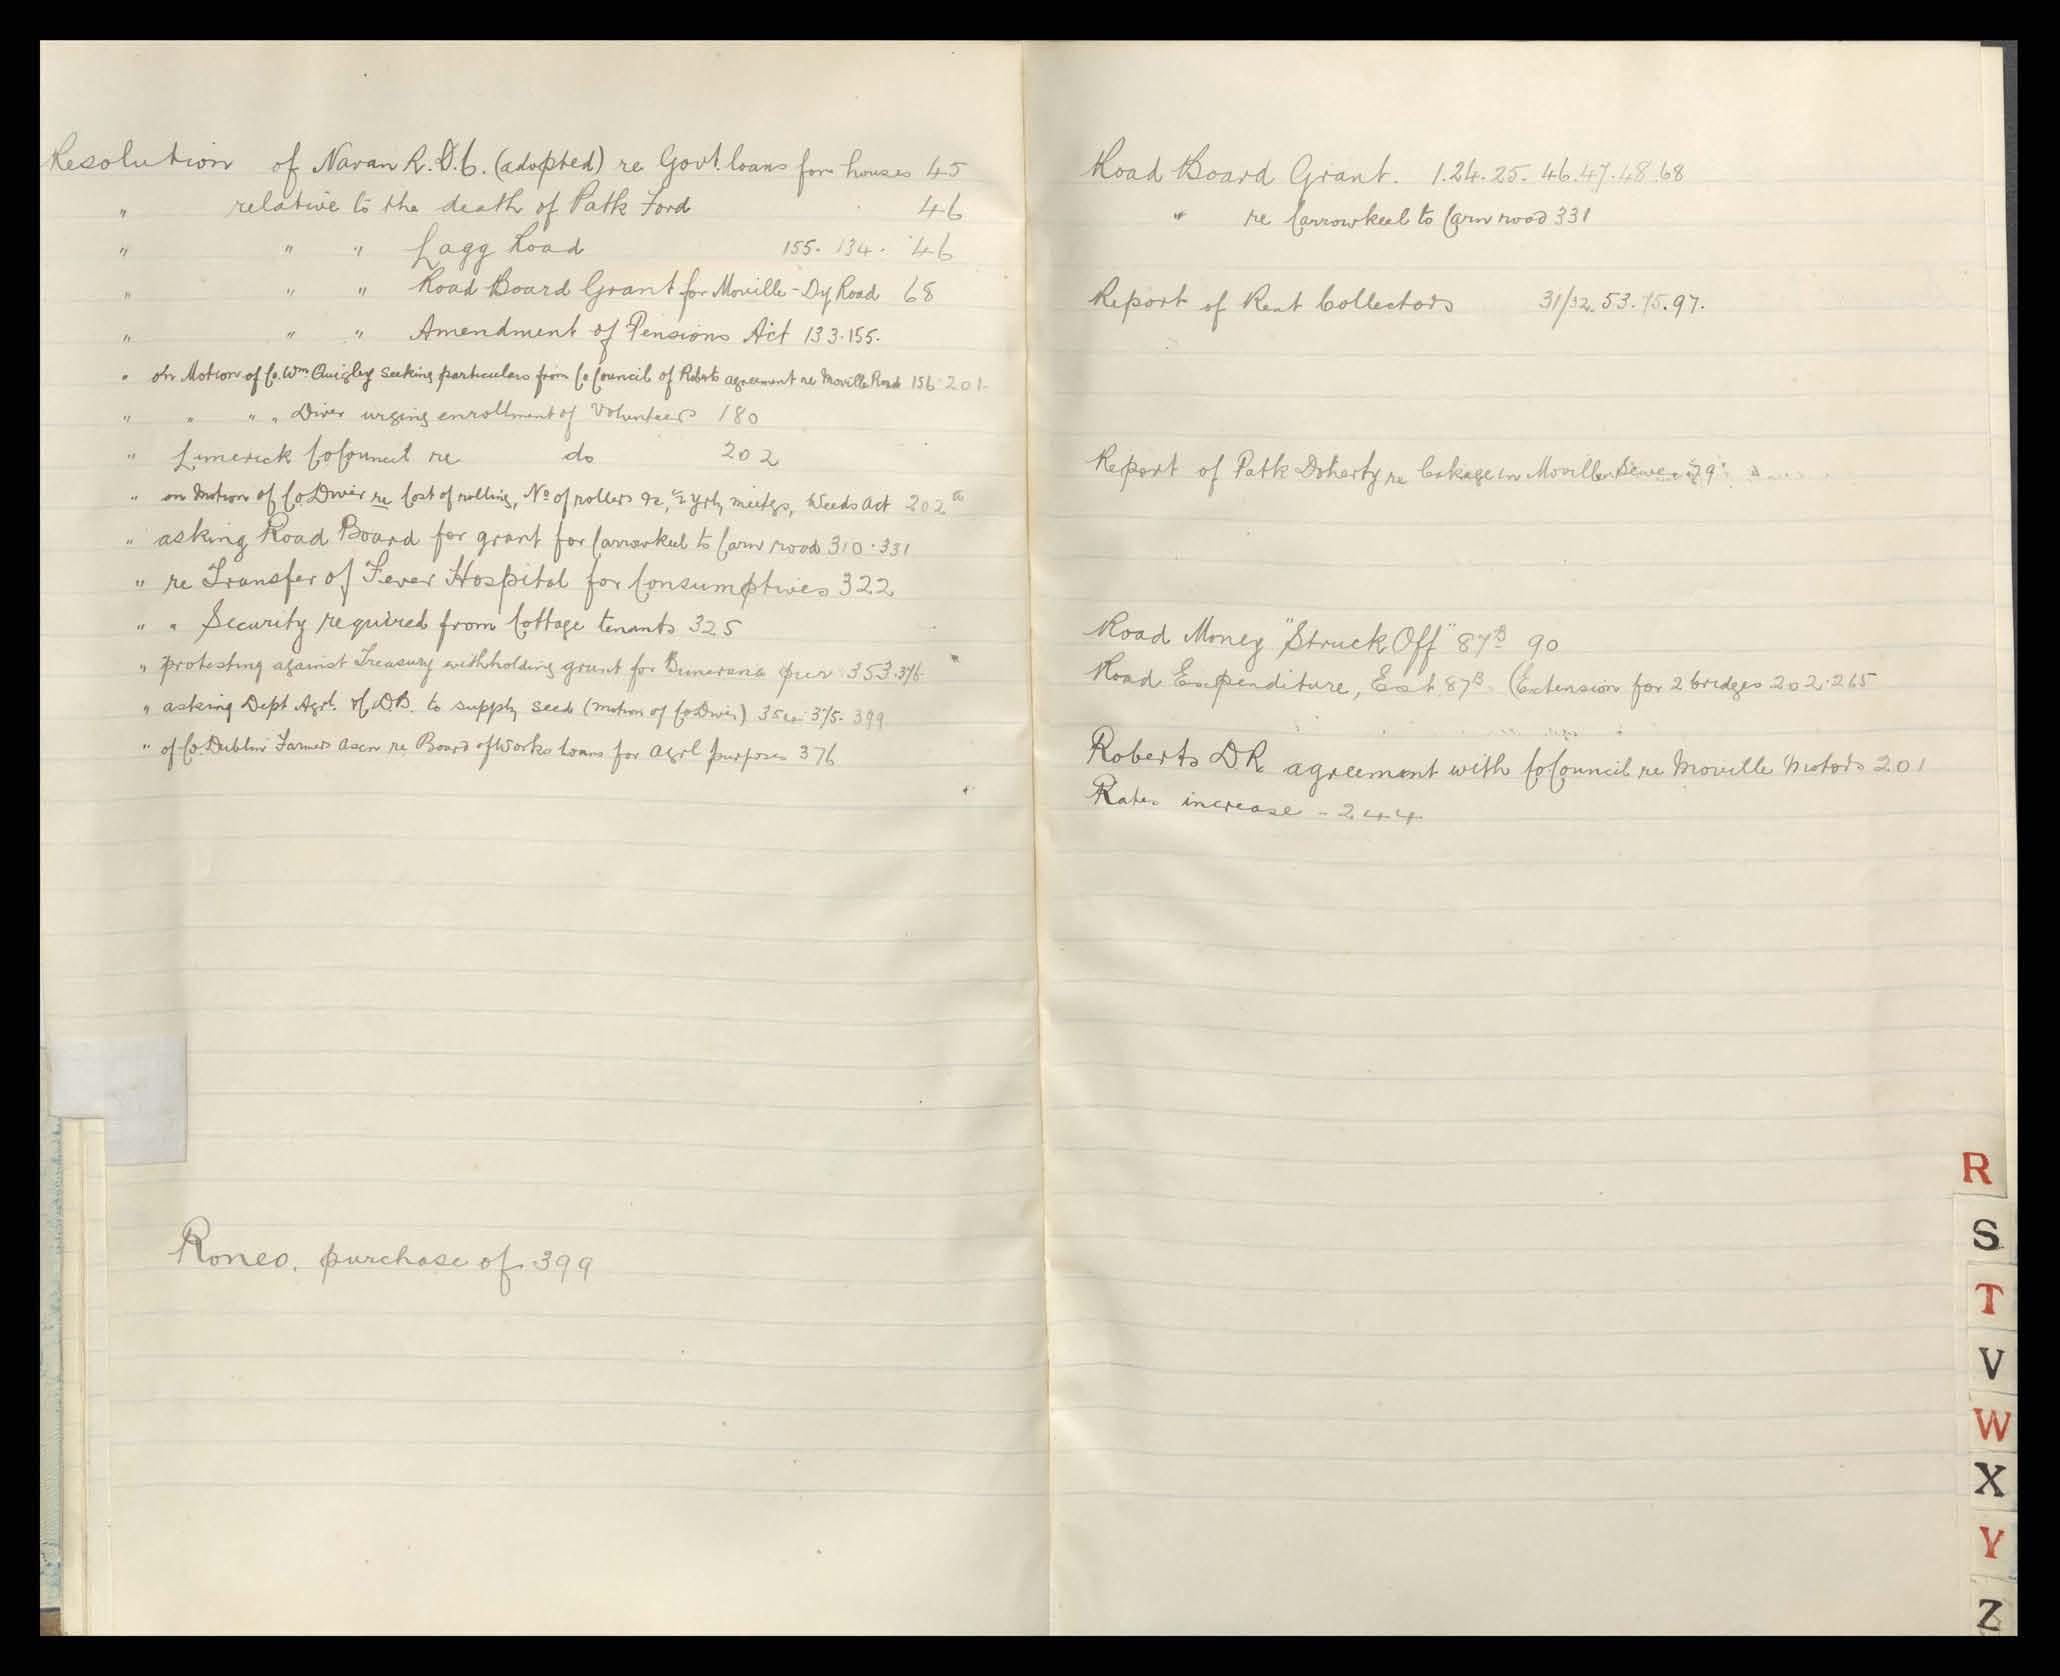 Resolution of Navan R.D.C. (adopted) re Govt. loans for houses 45
" relative to the death of Patk Ford 46
" " " Lagg Road 155. 134. 46
" " " Road Board Grant for Moville-Dy Road 68
" " " Amendment of Pensions Act 133.155.
" on Motion of Co. Wm Quigley seeking particulars from Co Council of Roberts agreement re Moville Road 156.201.
" " " " Diver urging enrollment of Volunteers 180
" Limerick Co Council re do 202
" on Motion of Co. Diver re Cost of rolling, No of rollers &c, ½ yrly meetgs, Weeds Act 202
" asking Road Board for grant for Carrowkeel to Carn road 310.331
" re Transfer of Fever Hospital for Consumptives 322
" " Security required from Cottage tenants 325
" protesting against Treasury withholding grant for Buncrana pier 353.376.
" asking Dept Agrl. of to supply seed (motion of Co Diver) 375. 399
" of Co. Dublin Farmers Assn re Board of Works loans for Agrl purposes 376
Roneo. purchase of 399
Road Board Grant. 1.24.25. 46.47.48.68
" re Carrowkeel to Carn road 331
Report of Rent Collectors 31/32.53.75.97.
Report of Patk Doherty re leakage in Moville Sewer 79
Road Money "Struck Off" 87B 90
Road Expenditure, East 87B. (Extension for 2 bridges 202.265
Roberts DR agreement with Co Council re Moville Motors 201
Rates increase - 244
R
S
T
V
W
X
Y
Z